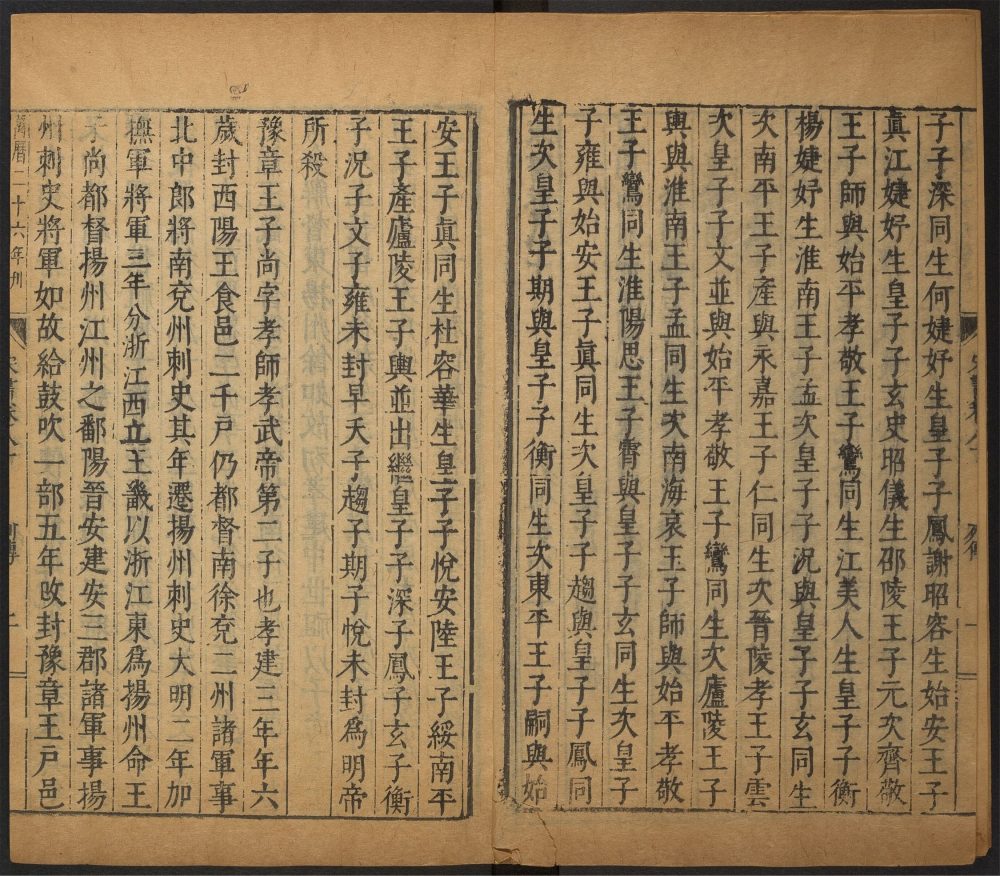 子子深同生何婕妤生皇子子鳳謝昭容生始安王子
眞江婕妤生皇子子玄史昭儀生邵陵王子元次齊敬
王子師與始平孝敬王子鸞同生江美人生皇子子衡
楊婕妤生淮南王子孟次皇子子況與皇子子玄同生
次南平王子產與永嘉王子仁同生次晉陵孝王子雲
次皇子子文並與始平孝敬王子鸞同生次廬陵王子
輿與淮南王子孟同生次南海哀王子師與始平孝敬
王子鸞同生淮陽思王子霄與皇子子玄同生次皇子
子雍與始安王子眞同生次皇子子趨與皇子子鳳同
生次皇子子期與皇子子衡同生次東平王子嗣與始
安王子眞同生杜容華生皇子子悅安陸王子綏南平
王子產廬陵王子輿並出繼皇子子深子鳳子玄子衡
子況子文子雍未封早夭子趨子期子悅未封爲明帝
所殺
豫章王子尚字孝師孝武帝第二子也孝建三年年六
歲封西陽王食邑二千戸仍都督南徐兖二州諸軍事
北中郎將南兖州刺史其年遷揚州刺史大明二年加
撫軍將軍三年分浙江西立王畿以浙江東爲揚州命王
子尚都督揚州江州之鄱陽晉安建安三郡諸軍事揚
州刺史將軍如故給鼓吹一部五年改封豫章王戸邑
萬曆二十六年刊